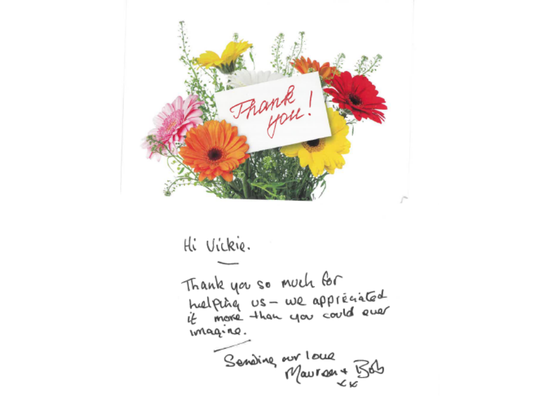 Thank
you!
Hi Vickie.
Thank you so much for
helping us - we appreciated
it more than you could ever
imagine.
Sending our love
Maureen + Bob
xx